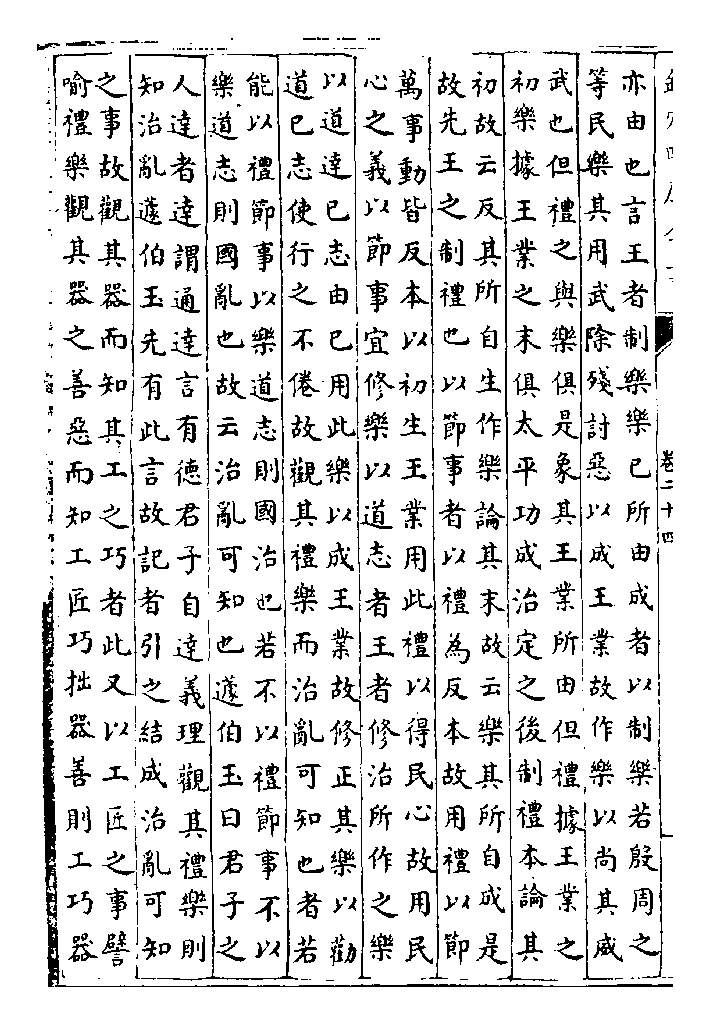 卷二十四
亦由也言王者制樂樂已所由成者以制樂若殷周之
等民樂其用武除殘討惡以成王業故作樂以尚其威
武也但禮之與樂俱是象其王業所由但禮據王業之
初樂據王業之末俱太平功成治定之後制禮本論其
初故云反其所自生作樂論其末故云樂其所自成是
故先王之制禮也以節事者以禮為反本故用禮以節
萬事動皆反本以初生王業用此禮以得民心故用民
心之義以節事宜修樂以道志者王者修治所作之樂
以道達已志由已用此樂以成王業故修正其樂以勸
道已志使行之不倦故觀其禮樂而治亂可知也者若
能以禮節事以樂道志則國治也若不以禮節事不以
樂道志則國亂也故云治亂可知也蘧伯玉曰君子之
人達者達謂通達言有德君子自達義理觀其禮樂則
知治亂蘧伯玉先有此言故記者引之結成治亂可知
之事故觀其器而知其工之巧者此又以工匠之事譬
喻禮樂觀其器之善惡而知工匠巧拙器善則工巧器